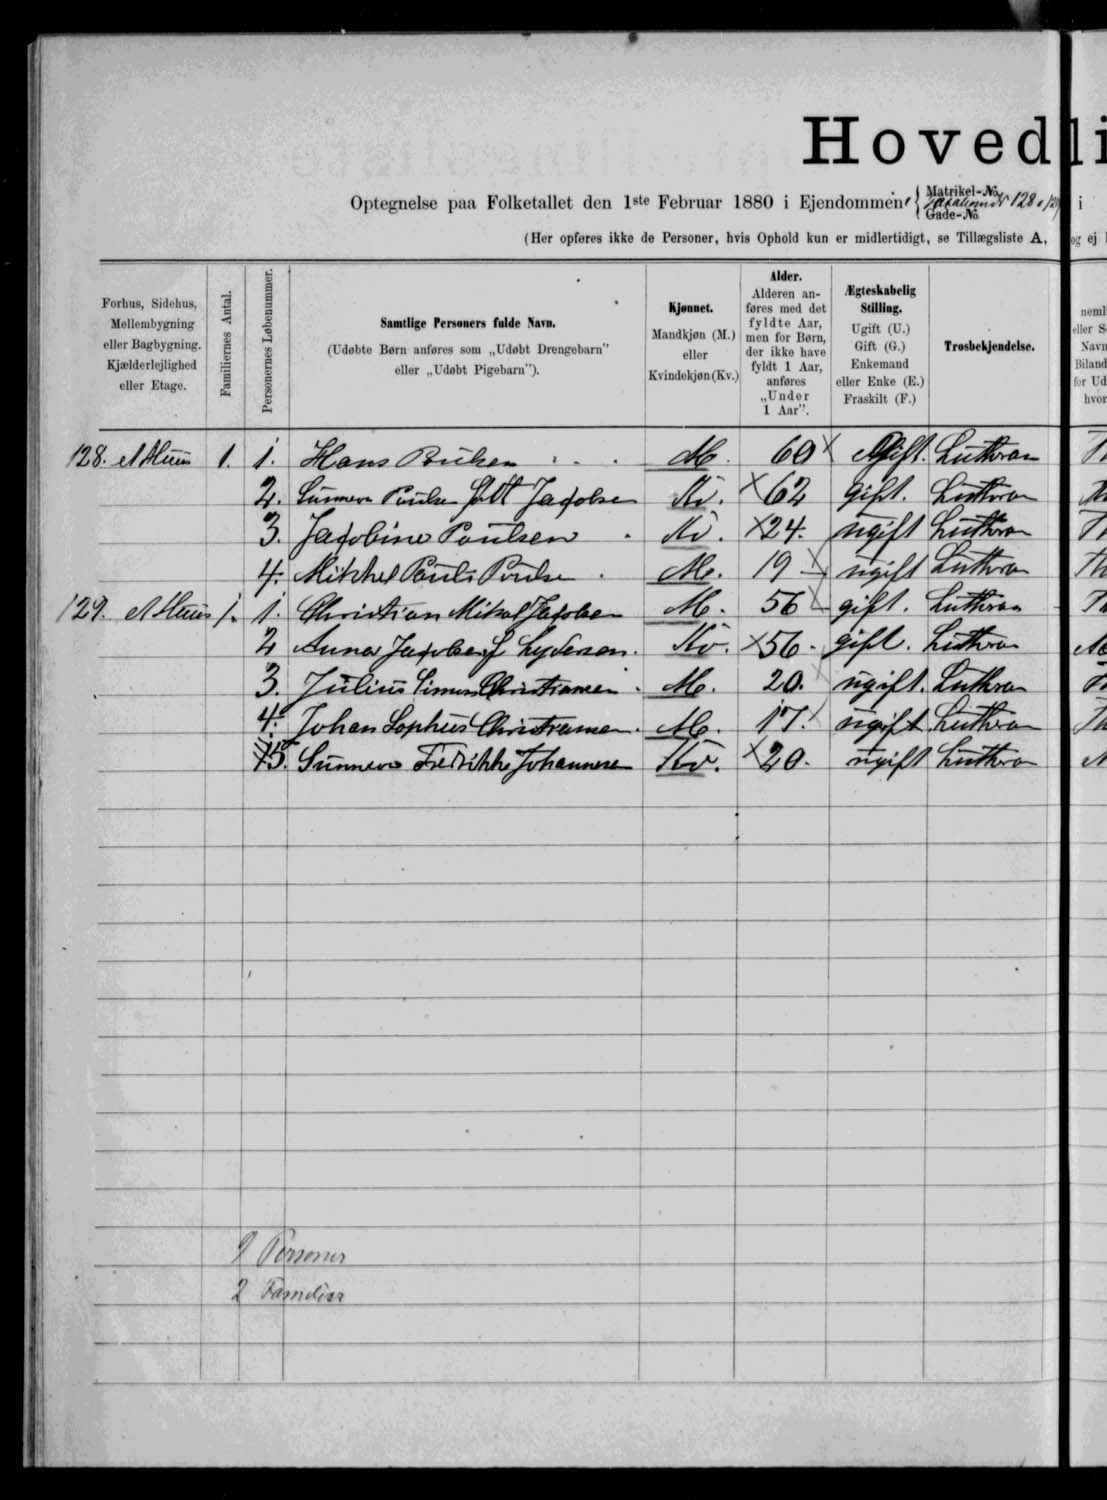 Hovedli
Optegnelse paa Folketallet den 1ste Februar 1880 i Ejendommen { Matrikel-No. 128 i
Gade-No.
(Her opføres ikke de Personer, hvis Ophold kun er midlertidigt, se Tillægsliste A, og ej
Forhus, Sidehus, Mellembygning eller Bagbygning. Kjælderlejlighed eller Etage.
Familiernes Antal.
Personernes Løbenummer.
Samtlige Personers fulde Navn.
(Udøbte Børn anføres som „Udøbt Drengebarn"
eller „Udøbt Pigebarn").
Kjønnet.
Mandkjøn (M.)
eller
Kvindekjøn (Kv.)
Alder.
Alderen an-
føres med det
fyldte Aar,
men for Børn,
der ikke have
fyldt 1 Aar,
anføres
„Under
1 Aar".
Ægteskabelig
Stilling.
Ugift (U.)
Gift (G.)
Enkemand
eller Enke (E.)
Fraskilt (F.)
Trosbekjendelse.
128. et Huus 1. 1. Hans Poulsen M. 60 Gift. Luthran
2. Sunneva Poulsen født Jacobsen Kv. 62 gift. Luthran
3. Jacobine Poulsen Kv. 24. ugift Luthran
4. Mikkel Pauli Poulsen M. 19 ugift Luthran
129. et Huus 1. 1. Christian Mikal Jacobsen M. 56 gift. Luthran
2 Anna Jacobsen f. Lydersen. Kv. 56. gift. Luthran
3. Julius Simon Christiansen M. 20. ugift. Luthran
4. Johan Sophus Christiansen. M. 17. ugift Luthran
5. Sunneva Fredrikke Johannesen Kv. 20. ugift Luthran
9 Personer
2 Familier